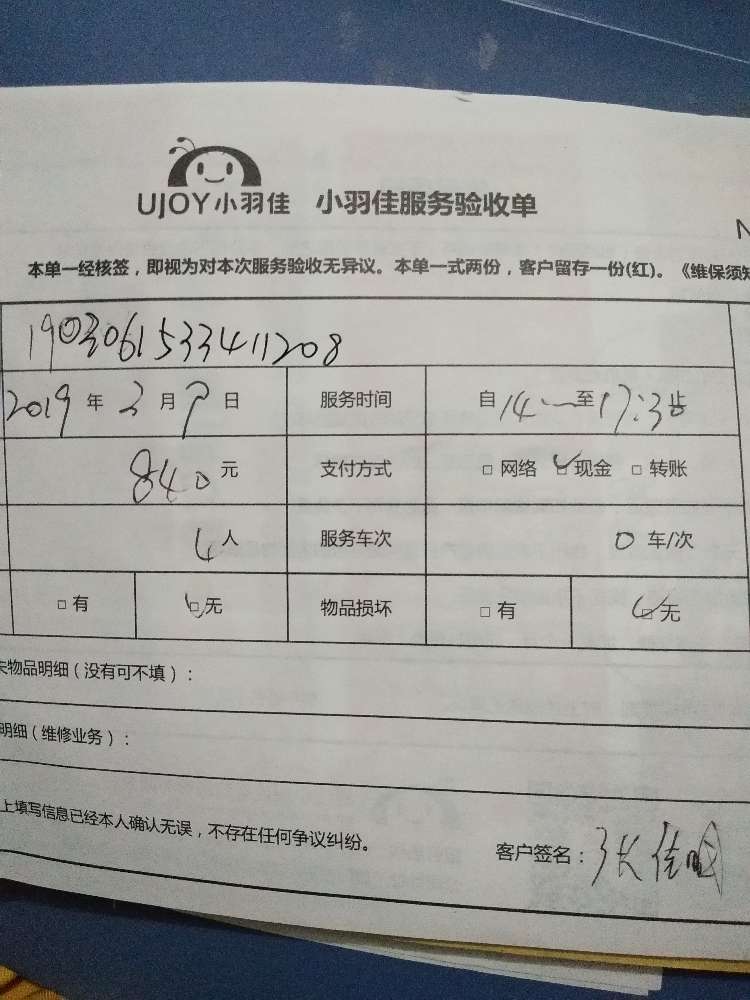 UJOY小羽佳 小羽佳服务验收单
N
本单一经核签，即视为对本次服务验收无异议。本单一式两份，客户留存一份(红)。《维保须知
1903061533411208
2019 年 3 月 9 日 服务时间 自 14:— 至 17:3 步
840 元 支付方式 □ 网络 ☑ 现金 □ 转账
4 人 服务车次 0 车/次
□ 有 ☑ 无 物品损坏 □ 有 ☑ 无
失物品明细（没有可不填）：
明细（维修业务）：
上填写信息已经本人确认无误，不存在任何争议纠纷。
客户签名：张佳